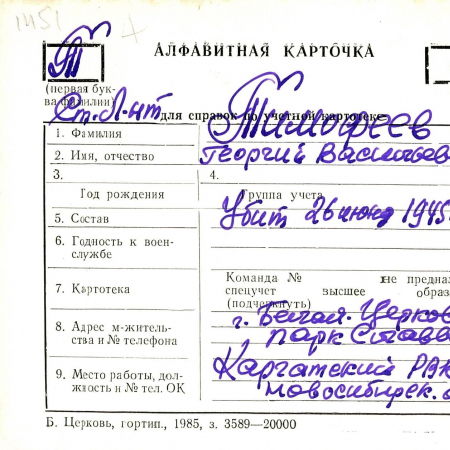 1451
АЛФАВИТНАЯ КАРТОЧКА
Т
(первая бук-
ва фамилии)
Ст. Л-нт
для справок по учетной картотеке
1. Фамилия Тимофеев
2. Имя, отчество Георгий Васильев
3. 4.
Год рождения Группа учета
5. Состав Убит 26 июня 1945
6. Годность к воен-
службе
7. Картотека
Команда № не предна
спецучет высшее образ
(подчеркнуть)
8. Адрес м-житель-
ства и № телефона
г. Белая Церков
парк Славы
9. Место работы, дол-
жность и № тел. ОК
Каргатский РВК
Новосибирск.
Б. Церковь, гортип., 1985, з. 3589—20000